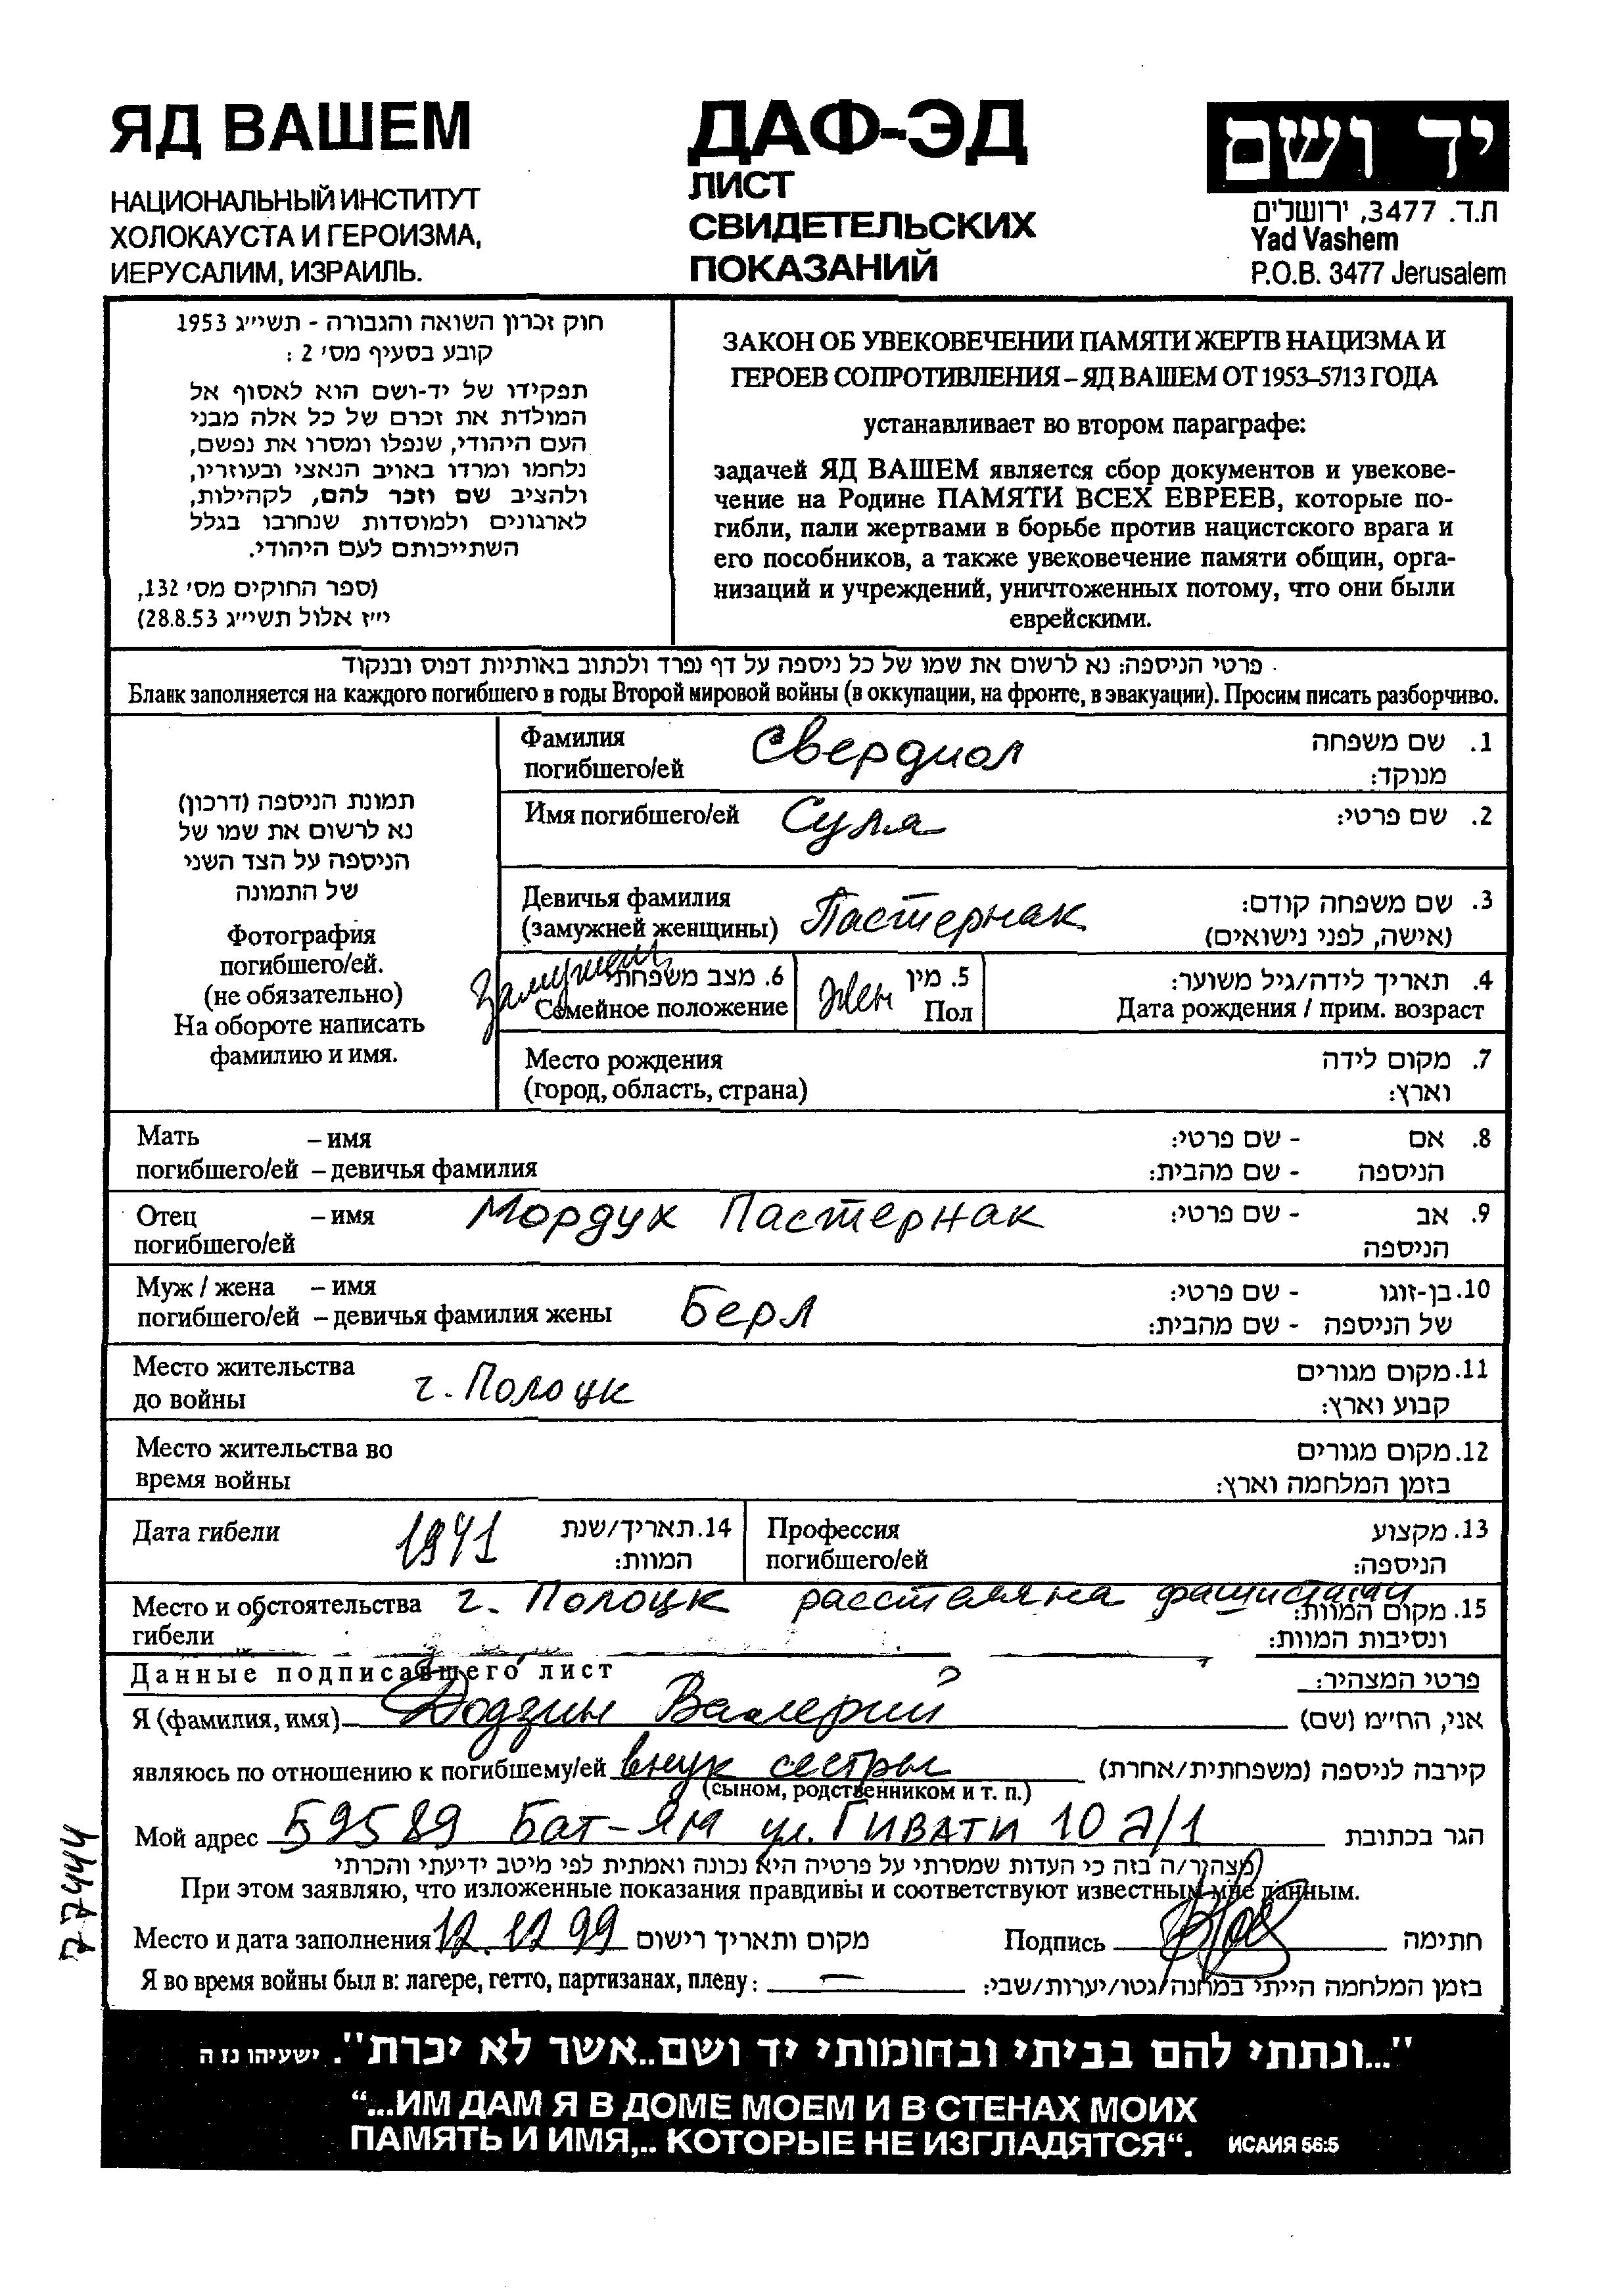 ЯД ВАШЕМ
НАЦИОНАЛЬНЫЙ ИНСТИТУТ
ХОЛОКАУСТА И ГЕРОИЗМА,
ИЕРУСАЛИМ, ИЗРАИЛЬ.
ДАФ-ЭД
ЛИСТ
СВИДЕТЕЛЬСКИХ
ПОКАЗАНИЙ
יד ושם
ת.ד. 3477, ירושלים
Yad Vashem
P.O.B. 3477 Jerusalem
חוק זכרון השואה והגבורה - תשי״ג 1953
קובע בסעיף מס׳ 2 :
תפקידו של יד-ושם הוא לאסוף אל
המולדת את זכרם של כל אלה מבני
העם היהודי, שנפלו ומסרו את נפשם,
נלחמו ומרדו באויב הנאצי ובעוזריו,
ולהציב שם וזכר להם, לקהילות,
לארגונים ולמוסדות שנחרבו בגלל
השתייכותם לעם היהודי.
(ספר החוקים מס׳ 132,
י״ז אלול תשי״ג 28.8.53)
ЗАКОН ОБ УВЕКОВЕЧЕНИИ ПАМЯТИ ЖЕРТВ НАЦИЗМА И
ГЕРОЕВ СОПРОТИВЛЕНИЯ – ЯД ВАШЕМ ОТ 1953–5713 ГОДА
устанавливает во втором параграфе:
задачей ЯД ВАШЕМ является сбор документов и увекове-
чение на Родине ПАМЯТИ ВСЕХ ЕВРЕЕВ, которые по-
гибли, пали жертвами в борьбе против нацистского врага и
его пособников, а также увековечение памяти общин, орга-
низаций и учреждений, уничтоженных потому, что они были
еврейскими.
פרטי הניספה: נא לרשום את שמו של כל ניספה על דף נפרד ולכתוב באותיות דפוס ובנקוד
Бланк заполняется на каждого погибшего в годы Второй мировой войны (в оккупации, на фронте, в эвакуации). Просим писать разборчиво.
תמונת הניספה (דרכון)
נא לרשום את שמו של
הניספה על הצד השני
של התמונה
Фотография
погибшего/ей.
(не обязательно)
На обороте написать
фамилию и имя.
Фамилия Свердиол 1. שם משפחה
погибшего/ей מנוקד:
Имя погибшего/ей Суля 2. שם פרטי:
Девичья фамилия Пастернак 3. שם משפחה קודם:
(замужней женщины) (אישה, לפני נישואים)
Замужем 6. מצב משפחתי жен 5. מין 4. תאריך לידה/גיל משוער:
Семейное положение Пол Дата рождения / прим. возраст
Место рождения 7. מקום לידה
(город, область, страна) וארץ:
Мать – имя 8. אם - שם פרטי:
погибшего/ей – девичья фамилия הניספה - שם מהבית:
Отец – имя Мордух Пастернак 9. אב - שם פרטי:
погибшего/ей הניספה
Муж / жена – имя Берл 10. בן-זוגו - שם פרטי:
погибшего/ей – девичья фамилия жены של הניספה - שם מהבית:
Место жительства г. Полоцк 11. מקום מגורים
до войны קבוע וארץ:
Место жительства во 12. מקום מגורים
время войны בזמן המלחמה וארץ:
Дата гибели 1941 14. תאריך/שנת Профессия 13. מקצוע
המוות: погибшего/ей הניספה:
Место и обстоятельства г. Полоцк расстаяна фашистами 15. מקום המוות:
гибели ונסיבות המוות:
Данные подписавшего лист פרטי המצהיר:
Я (фамилия, имя) Додзин Валерий אני, הח״מ (שם)
являюсь по отношению к погибшему/ей внук сестры קירבה לניספה (משפחתית/אחרת)
(сыном, родственником и т. п.)
Мой адрес 59589 Бат-Ям ул. ГИВАТИ 10 א/1 הגר בכתובת
מצהיר/ה בזה כי העדות שמסרתי על פרטיה היא נכונה ואמתית לפי מיטב ידיעתי והכרתי
При этом заявляю, что изложенные показания правдивы и соответствуют известным мне данным.
Место и дата заполнения 12.12.99 מקום ותאריך רישום Подпись חתימה
Я во время войны был в: лагере, гетто, партизанах, плену: — בזמן המלחמה הייתי במחנה/גטו/יערות/שבי:
77444
"...ונתתי להם בביתי ובחומותי יד ושם..אשר לא יכרת". ישעיהו נז ה
“...ИМ ДАМ Я В ДОМЕ МОЕМ И В СТЕНАХ МОИХ
ПАМЯТЬ И ИМЯ,.. КОТОРЫЕ НЕ ИЗГЛАДЯТСЯ“. ИСАИЯ 56:5